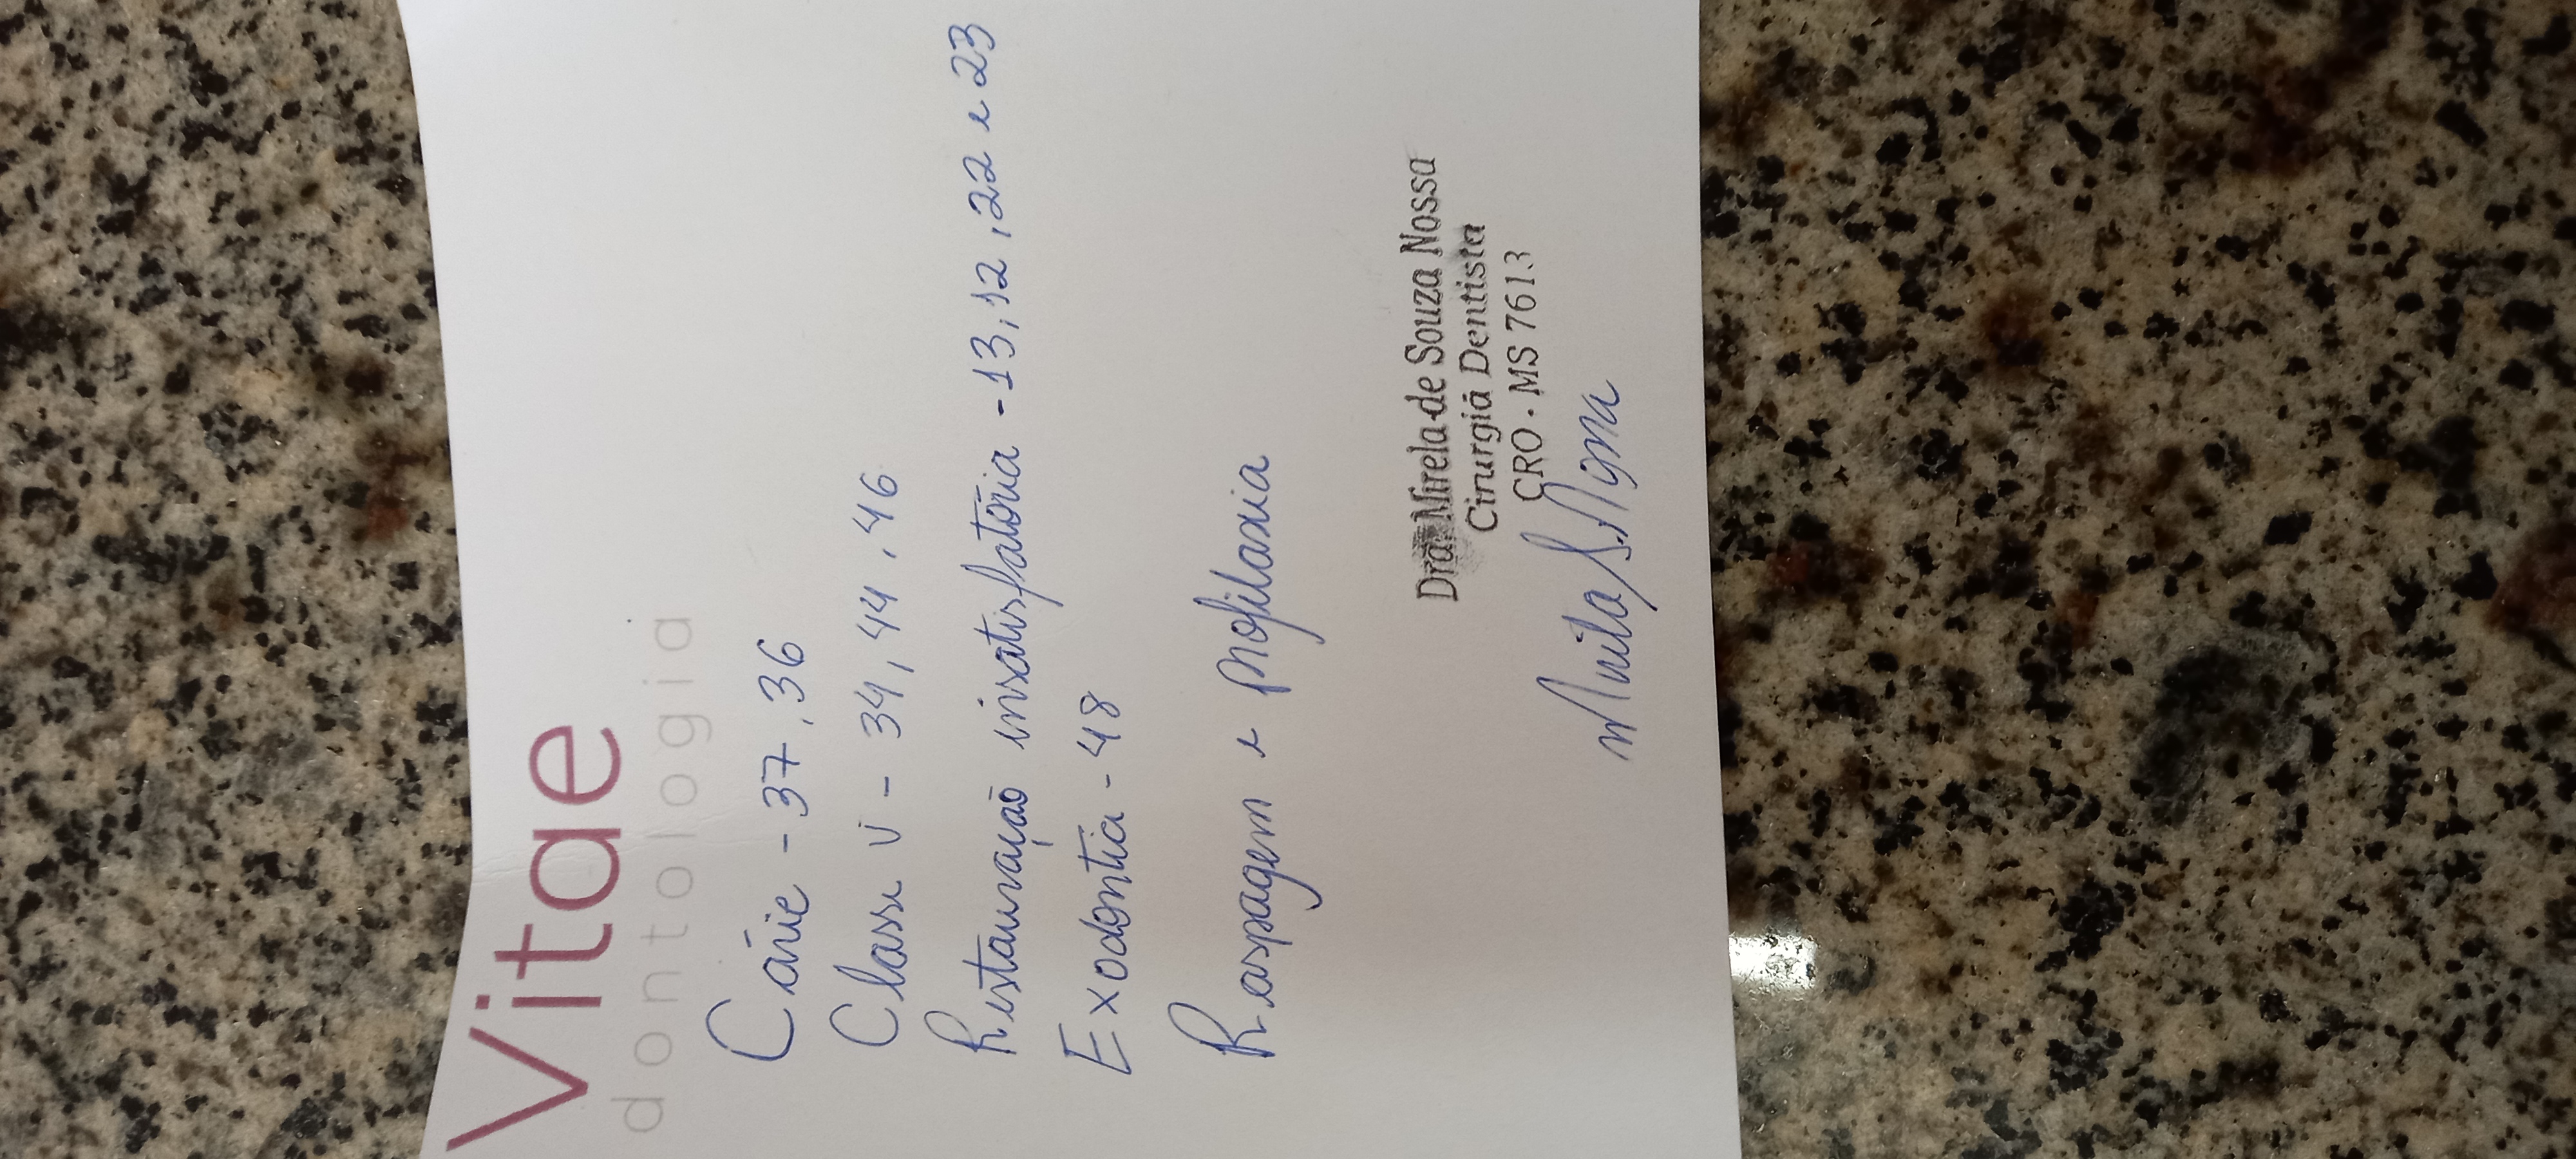 Vitae
dontologia
Cárie - 37, 36
Classe V - 34, 44, 46
Restauração insatisfatória - 13, 12, 22 e 23
Exodontia - 48
Raspagem e profilaxia
Dra. Mirela de Souza Nossa
Cirurgiã Dentista
CRO - MS 7613